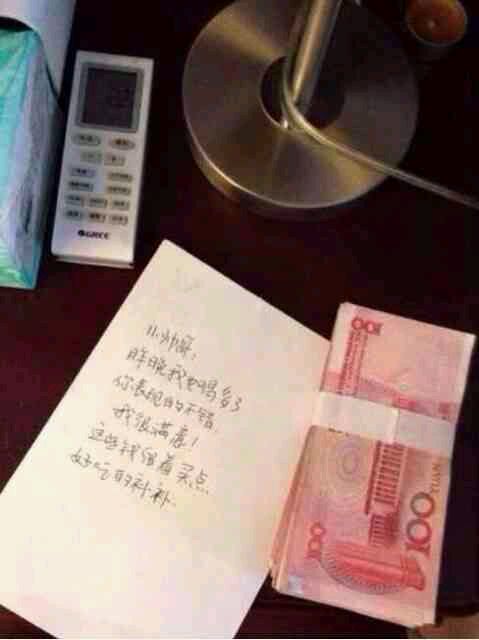 小帅哥,
昨晚我也喝多了
你表现的不错,
我很满意!
这些钱留着买点
好吃的补补.
GREE
100
100
YUAN
100